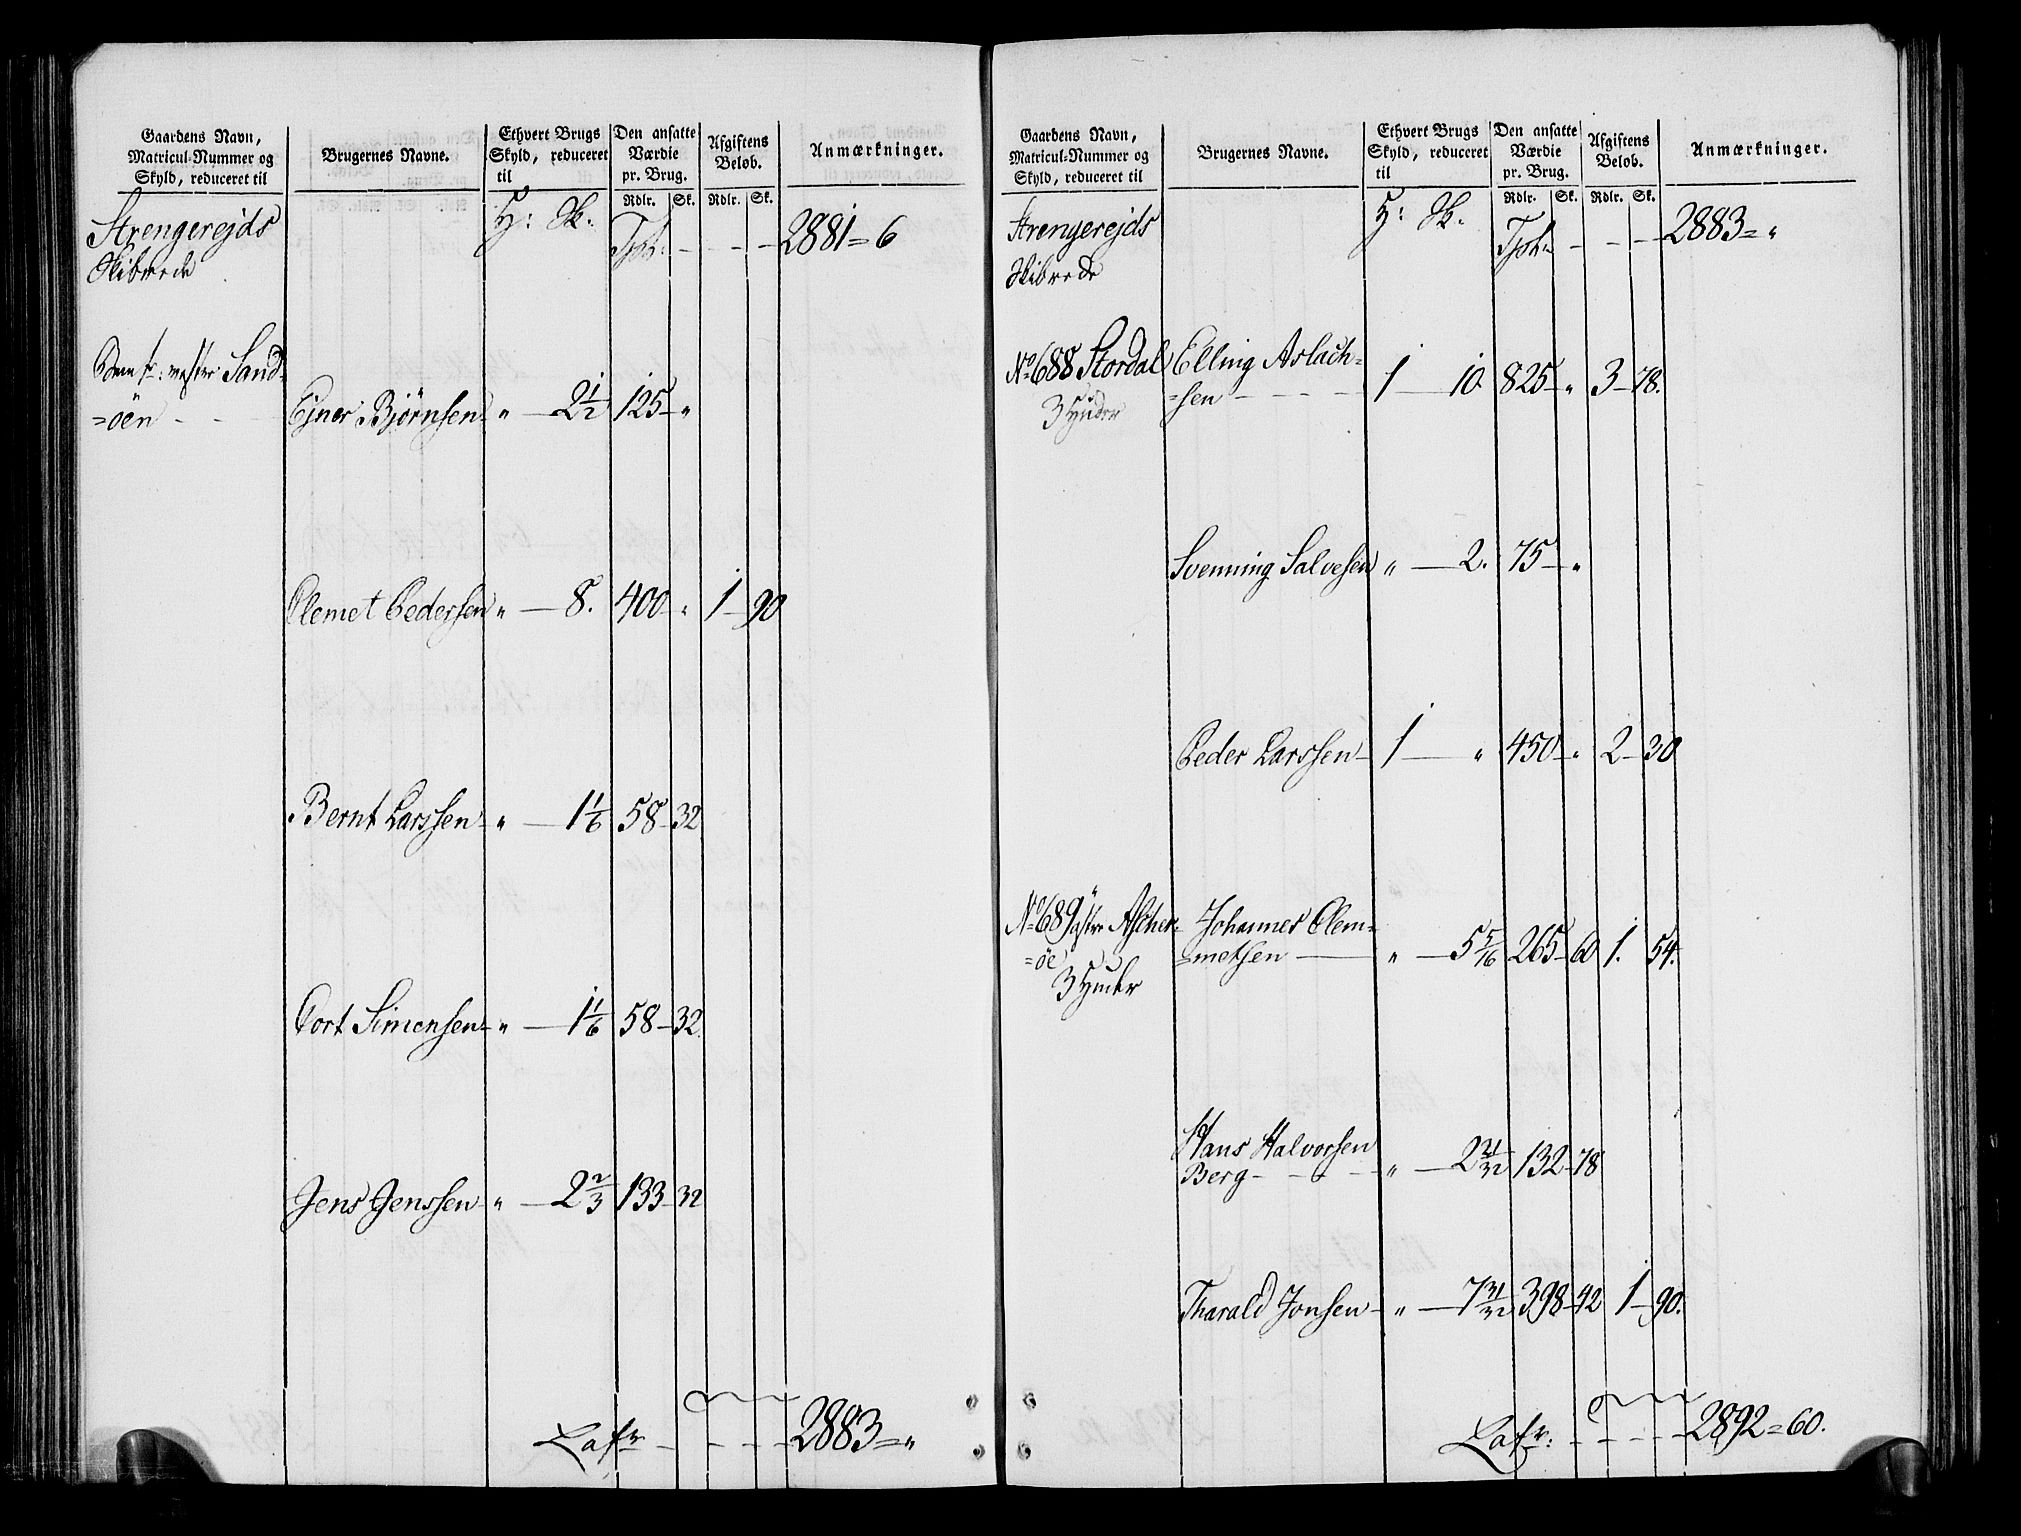 Gaardens Navn,
Matricul-Nummer og
Skyld, reduceret til
Brugernes Navne.
Ethvert Brugs
Skyld, reduceret
til
Den ansatte
Værdie
pr. Brug.
Afgiftens
Beløb.
Anmærkninger.
Rdlr. Sk. Rdlr. Sk.
Strengerejds
Skibrede
H: Sk. Tpt: - - - 2881=6
vester Sand-
=öen - -
Ejner Björnsen - " - 2 1/2 125 - "
Clemet Pedersen " - 8. 400 - " 1 - 90
Bernt Larssen - " - 1 1/6 58 - 32
Cort Simensen - " - 1 1/6 58 - 32.
Jens Jenssen - " - 2 2/3 133 - 32
Lat - - - - 2883="
Gaardens Navn,
Matricul-Nummer og
Skyld, reduceret til
Brugernes Navne.
Ethvert Brugs
Skyld, reduceret
til
Den ansatte
Værdie
pr. Brug.
Afgiftens
Beløb.
Anmærkninger.
Rdlr. Sk. Rdlr. Sk.
Strengerejds
Skibrede
H: Sk. Tpt: - - - 2883="
No 688 Stordal Elling Aslach=
=sen - - - - 1 - 10. 825 - " 3 - 78.
3 Hynder
Svenning Salvesen " - 2. 75 - "
Peder Larssen - 1 - " 450 - " 2 - 30
No 689 östre Ascher= Johannes Clem=
=öe =metsen - " - 5 5/16 265 - 60 1. 54.
3 Hynder
Hans Halvorsen
Berg - - - " - 2 21/32 132 - 78
Tharald Jonsen - " - 7 31/32 398 - 42 1 - 90.
Lat: - - - - 2892=60.